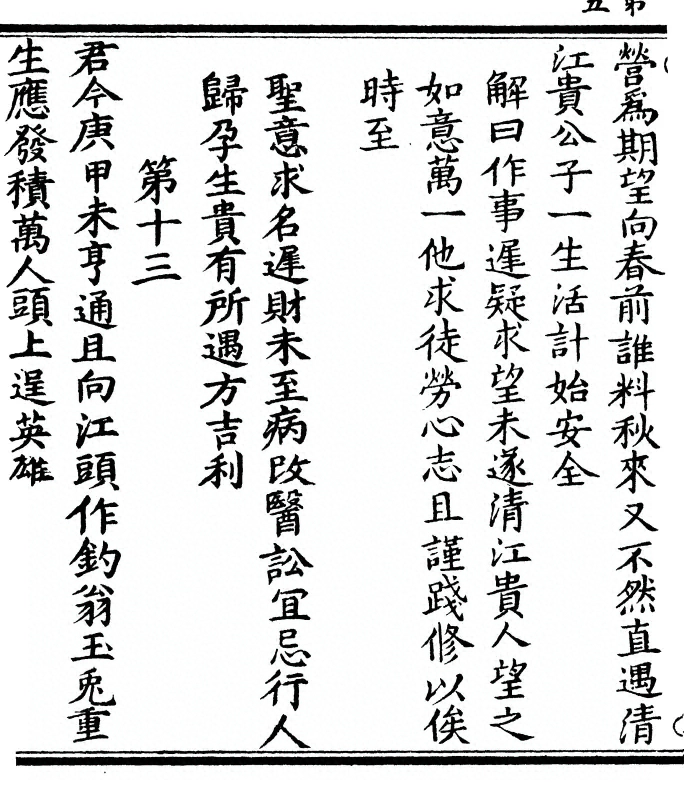 第五
營爲期望向春前誰料秋來又不然直遇清
江貴公子一生活計始安全
解曰作事遲疑求望未遂清江貴人望之
如意萬一他求徒勞心志且謹踐修以俟
時至
聖意求名遲財未至病改醫訟宜忌行人
歸孕生貴有所遇方吉利
第十三
君今庚甲未亨通且向江頭作釣翁玉兎重
生應發積萬人頭上逞英雄